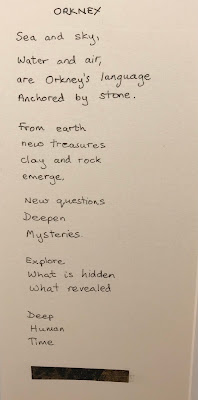 ORKNEY
Sea and sky,
Water and air,
are Orkney's language
Anchored by stone.
From earth
new treasures
clay and rock
emerge.
New questions
Deepen
Mysteries.
Explore
What is hidden
What revealed
Deep
Human
Time